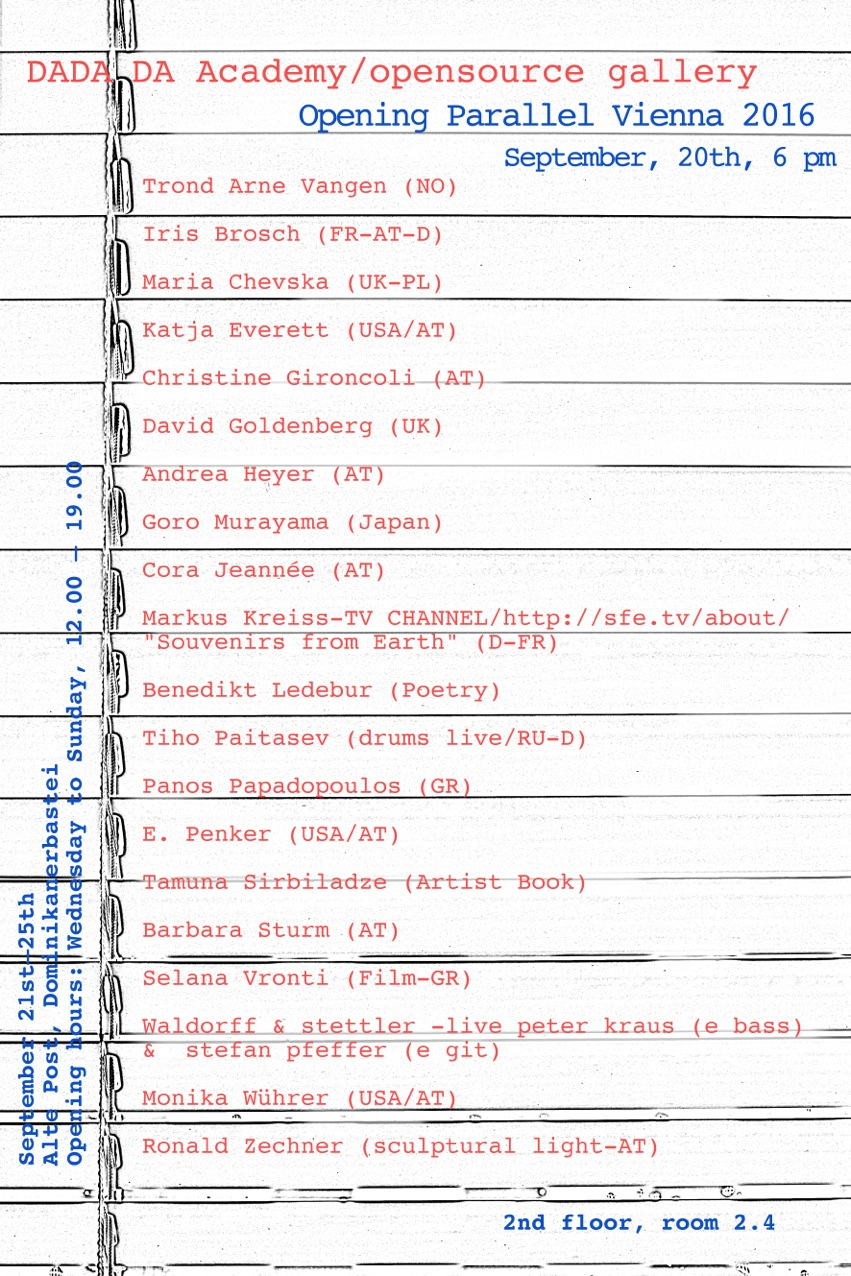 DADA DA Academy/opensource gallery
Opening Parallel Vienna 2016
September, 20th, 6 pm
Trond Arne Vangen (NO)
Iris Brosch (FR-AT-D)
Maria Chevska (UK-PL)
Katja Everett (USA/AT)
Christine Gironcoli (AT)
David Goldenberg (UK)
Andrea Heyer (AT)
Goro Murayama (Japan)
Cora Jeannée (AT)
Markus Kreiss-TV CHANNEL/http://sfe.tv/about/
"Souvenirs from Earth" (D-FR)
Benedikt Ledebur (Poetry)
Tiho Paitasev (drums live/RU-D)
Panos Papadopoulos (GR)
E. Penker (USA/AT)
Tamuna Sirbiladze (Artist Book)
Barbara Sturm (AT)
Selana Vronti (Film-GR)
Waldorff & stettler -live peter kraus (e bass)
&  stefan pfeffer (e git)
Monika Wührer (USA/AT)
Ronald Zechner (sculptural light-AT)
September 21st-25th
Alte Post, Dominikanerbastei
Opening hours: Wednesday to Sunday, 12.00 – 19.00
2nd floor, room 2.4